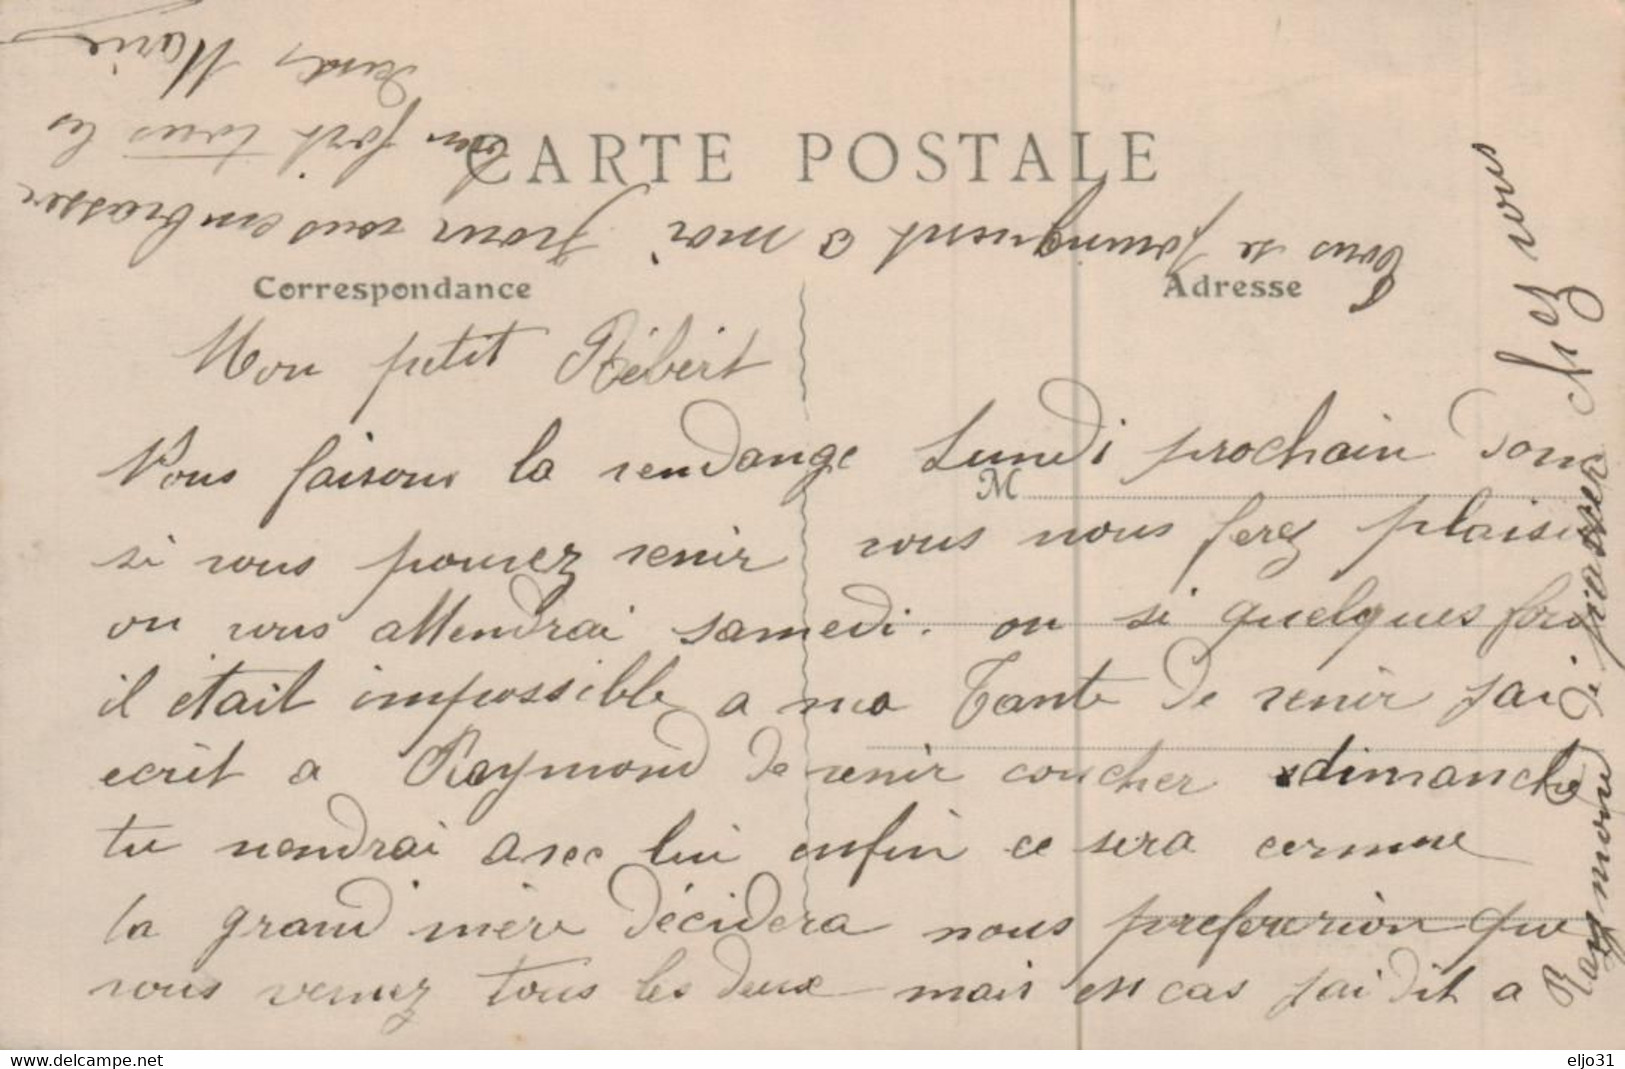 CARTE POSTALE
Correspondance
Adresse
M
Mon petit Rébért
Nous faisons la vendange Lundi prochain donc
si vous pouvez venir vous nous ferez plaisir
on vous attendrai samedi. ou si quelques fois
il était impossible a ma Tante de venir jai
ecrit a Raymond de venir coucher dimanche
tu viendrai avec lui enfin ce sera comme
la grand mère décidera nous preferrion que
vous veniez tous les deux mais en cas jai dit a
Raymond de passer chez vous
Tous se joingnent a moi pour vous embrasser
bien fort tous les
deux, Marie
www.delcampe.net
eljo31